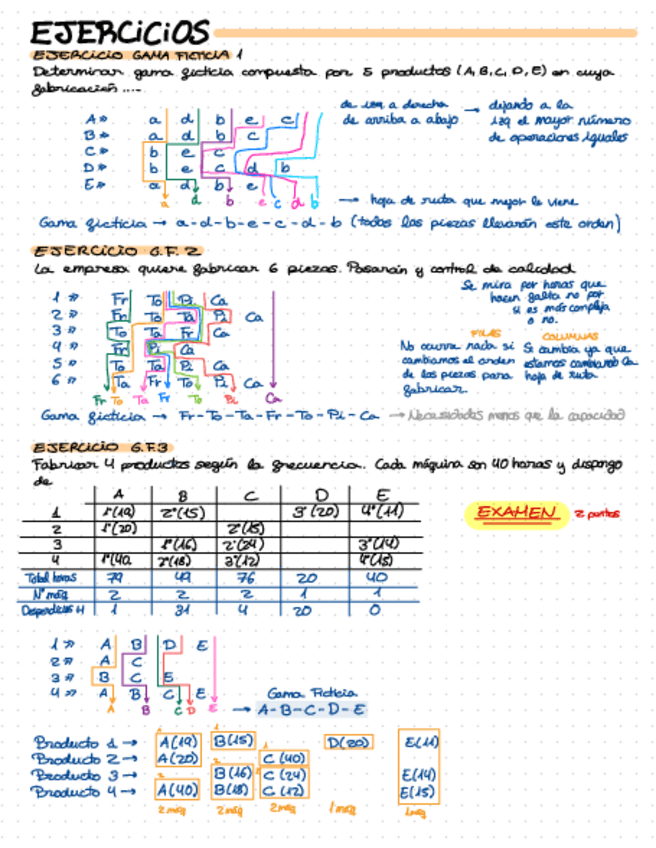 EJERCICIOS
EJERCICIO GAMA FICTICIA 1
Determinar gama ficticia compuesta por 5 productos (A, B, C, D, E) en cuya
fabricación ....
de izq a derecha → dejando a la
de arriba a abajo izq el mayor número
de operaciones iguales
A» a d b e c
B» a d b c
C» b e c
D» b e c d b
E» a d b e
a d b e c d b
→ hoja de ruta que mejor le viene
Gama ficticia → a-d-b-e-c-d-b (todas las piezas llevarán este orden)
EJERCICIO G.F. 2
La empresa quiere fabricar 6 piezas. Pasarán y control de calidad
Se mira por horas que
hacen falta no por
si es más compleja
o no.
1 » Fr To Pi Ca
2 » Fr To Ta Pi Ca
3 » To Ta Fr Ca
4 » Fr Pi Ca
5 » To Ta Pi Ca
6 » Ta Fr To Pi Ca
Fr To Ta Fr To Pi Ca
FILAS
No ocurre nada si
cambiamos el orden
de las piezas para
fabricar
COLUMNAS
Se cambia ya que
estamos cambiando la
hoja de ruta
Gama ficticia → Fr-To-Ta-Fr-To-Pi-Ca → Necesidades menos que la capacidad
EJERCICIO G.F.3
Fabricar 4 productos según la frecuencia. Cada máquina son 40 horas y dispongo
de
A B C D E
1 1º(19) 2º(15) 3º(20) 4º(11)
2 1º(20) 2º(15)
3 1º(16) 2º(24) 3º(14)
4 1º(40) 2º(18) 3º(12) 4º(15)
Total horas 79 49 76 20 40
Nº máq 2 2 2 1 1
Desperdicios H 1 31 4 20 0
EXAMEN 2 puntos
1 » A B D E
2 » A C
3 » B C E
4 » A B C E
A B C D E
Gama Ficticia
→ A-B-C-D-E
Producto 1 → A(19) B(15) D(20) E(11)
Producto 2 → A(20) C(40)
Producto 3 → B(16) C(24) E(14)
Producto 4 → A(40) B(18) C(12) E(15)
2 máq 2 máq 2 máq 1 máq 1 máq